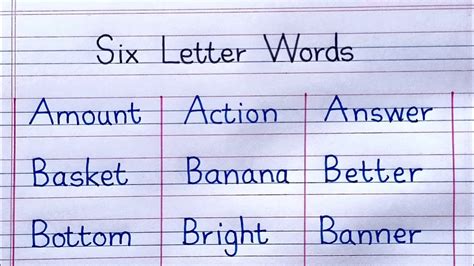 Six Letter Words
Amount Action Answer
Basket Banana Better
Bottom Bright Banner